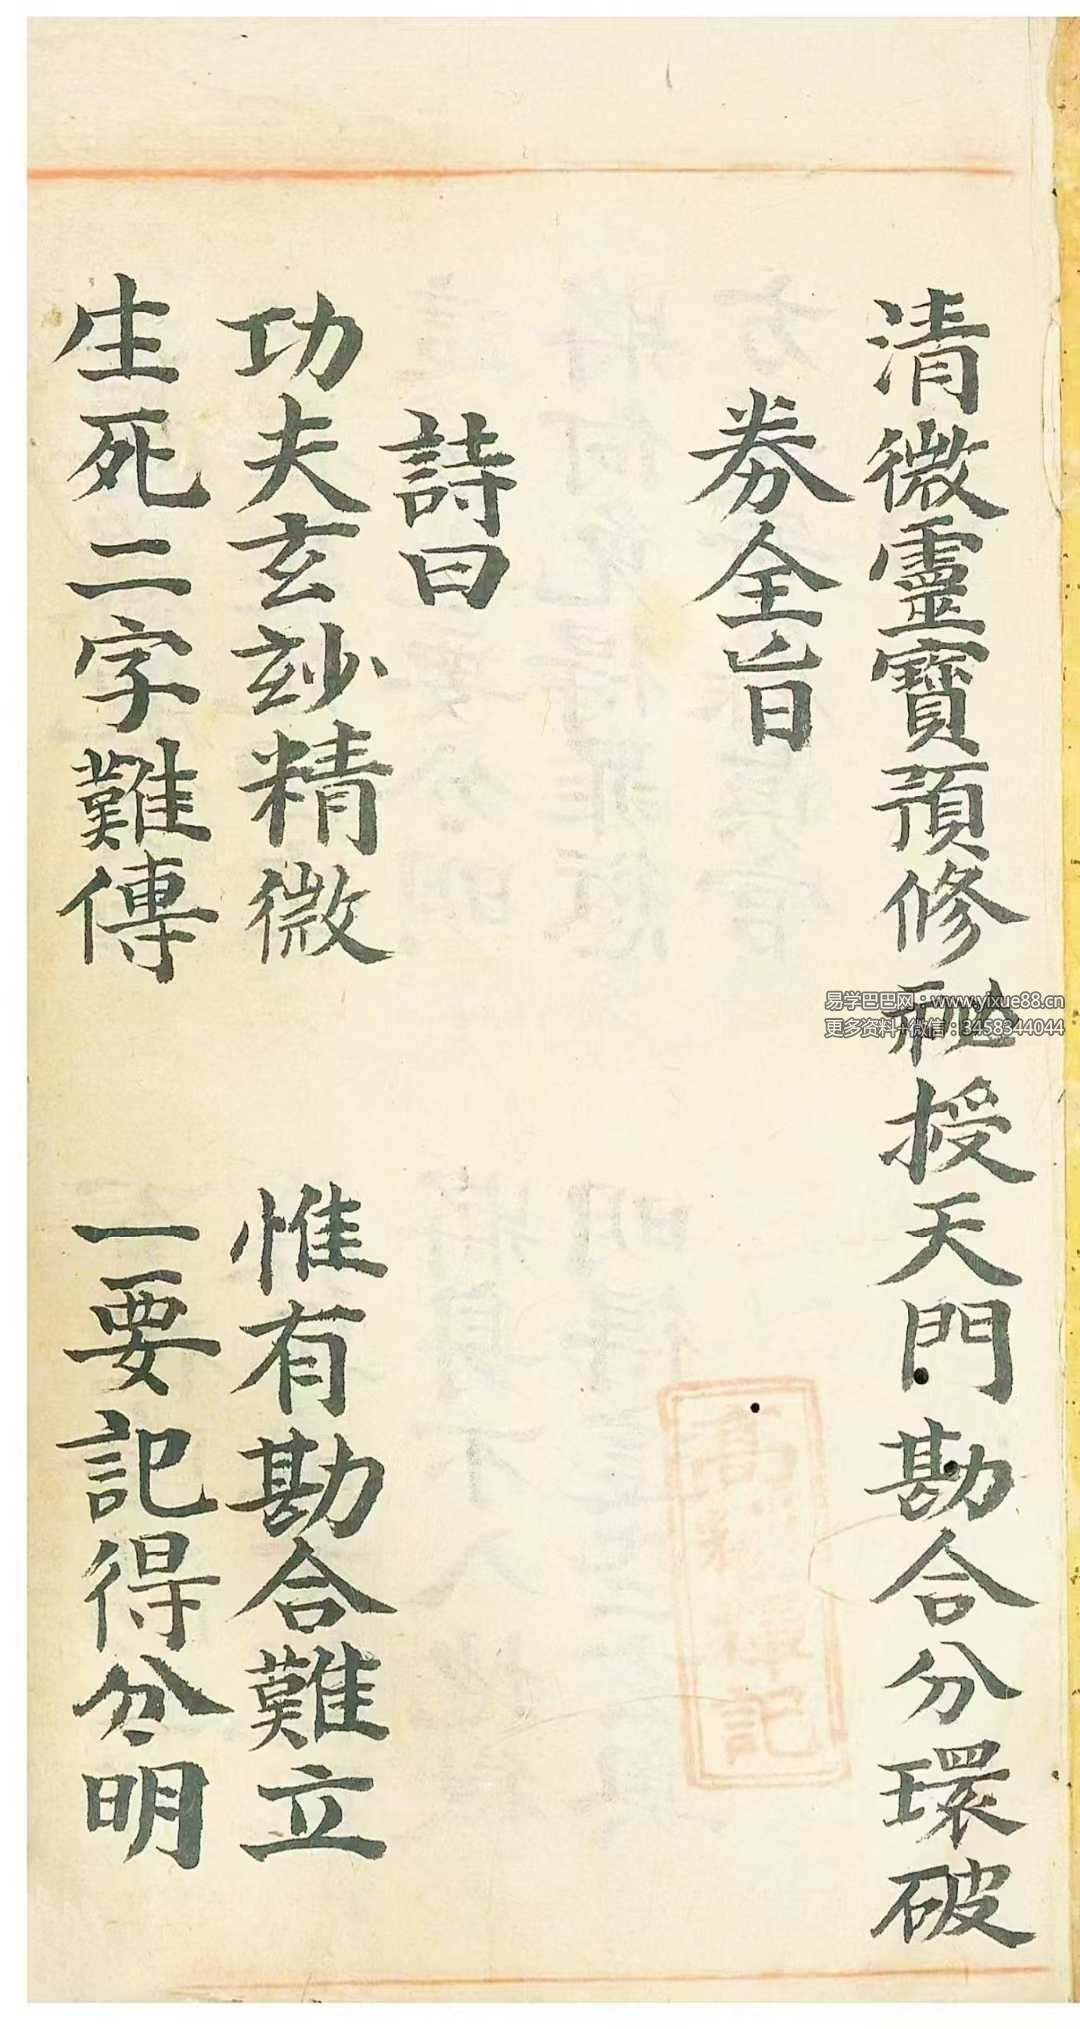 清微靈寶預修秘授天門勘合分環破
券全旨
詩曰
功夫玄妙精微 惟有勘合難立
生死二字難傳 一要記得分明
易学巴巴网：www.yixue88.cn
更多资料+微信：3458344044
記